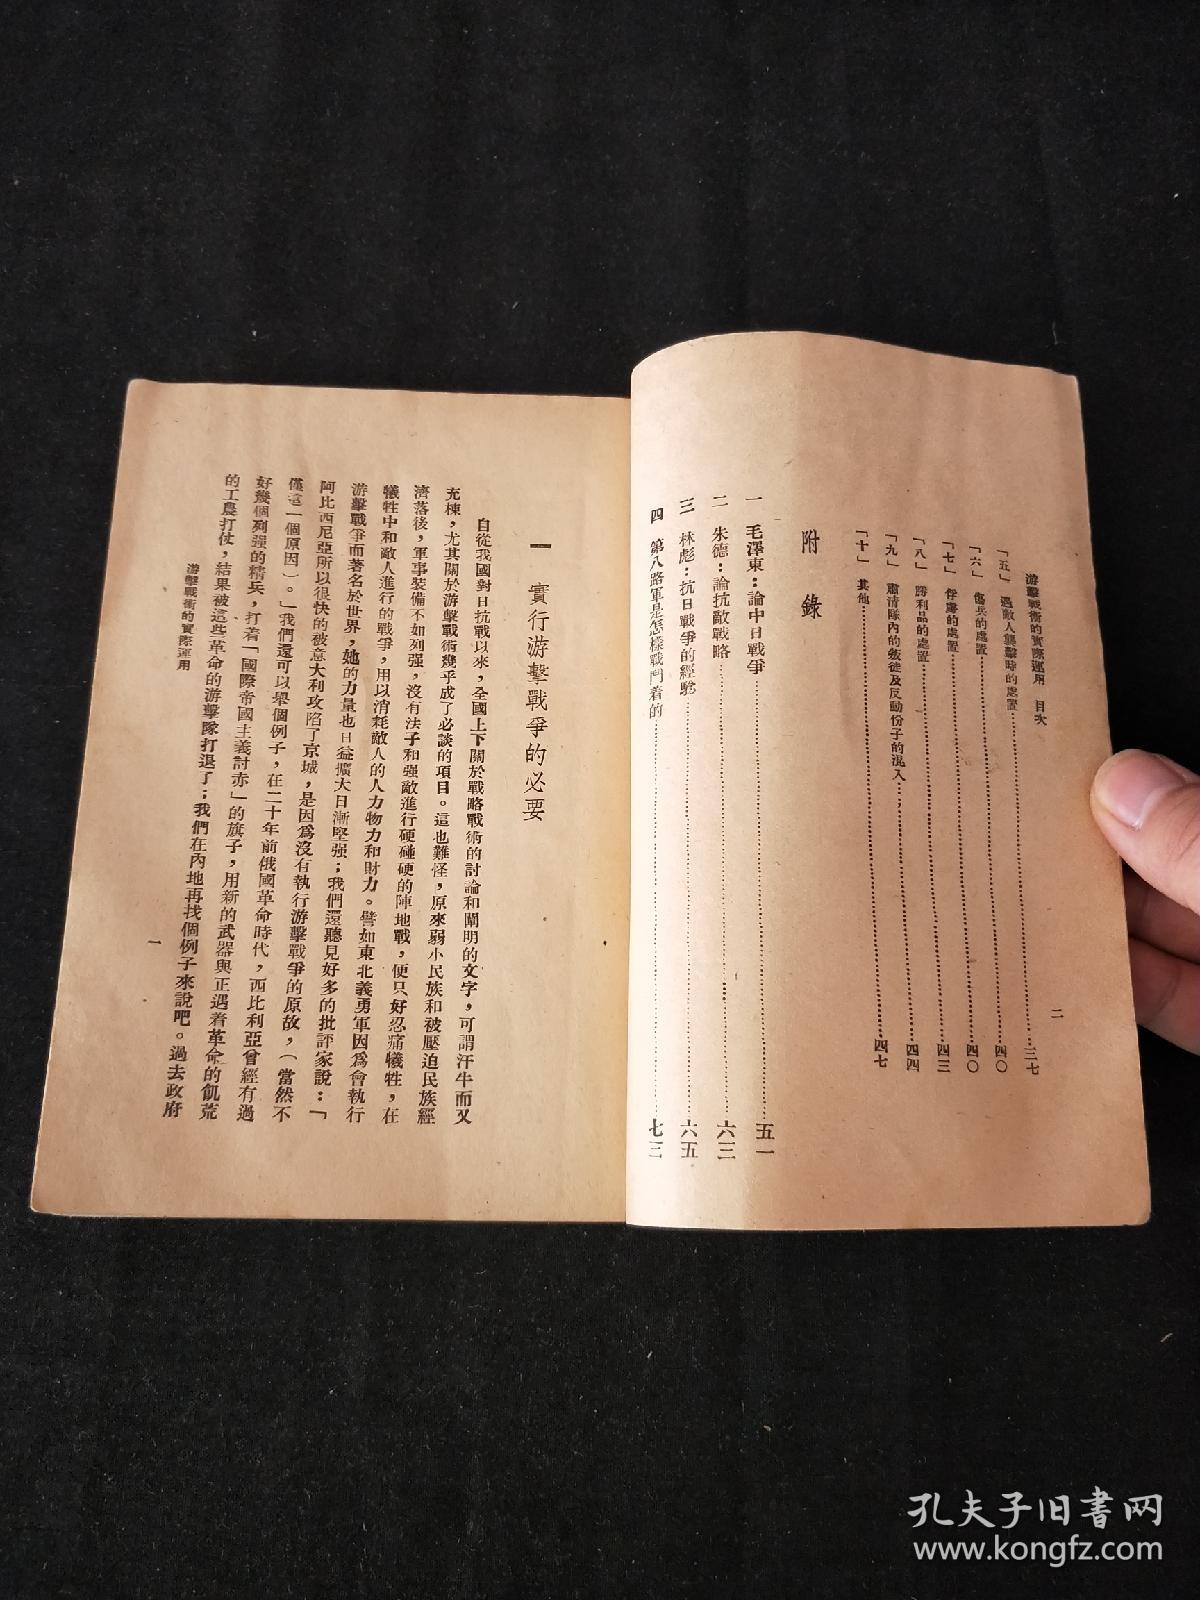 游擊戰術的實際運用　目次
二
「五」遇敵人襲擊時的處置…………三七
「六」傷兵的處置…………四〇
「七」俘虜的處置…………四〇
「八」勝利品的處置…………四三
「九」肅清隊內的叛徒及反動份子的混入…………四四
「十」其他…………四七
附錄
一　毛澤東：論中日戰爭…………五一
二　朱德：論抗敵戰略…………六三
三　林彪：抗日戰爭的經驗…………六五
四　第八路軍是怎樣戰鬥着的…………七三
一　實行游擊戰爭的必要
自從我國對日抗戰以來，全國上下關於戰略戰術的討論和闡明的文字，可謂汗牛而又
充棟，尤其關於游擊戰術幾乎成了必談的項目。這也難怪，原來弱小民族和被壓迫民族經
濟落後，軍事裝備不如列强，沒有法子和强敵進行硬碰硬的陣地戰，便只好忍痛犧牲，在
犧牲中和敵人進行的戰爭，用以消耗敵人的人力物力和財力。譬如東北義勇軍因爲會執行
游擊戰爭而著名於世界，她的力量也日益擴大日漸堅强；我們還聽見好多的批評家說：「
阿比西尼亞所以很快的被意大利攻陷了京城，是因爲沒有執行游擊戰爭的原故，（當然不
僅這一個原因）。」我們還可以舉個例子，在二十年前俄國革命時代，西比利亞曾經有過
好幾個列强的精兵，打着「國際帝國主義討赤」的旗子，用新的武器與正遇着革命的飢荒
的工農打仗，結果被這些革命的游擊隊打退了；我們在內地再找個例子來說吧。過去政府
游擊戰術的實際運用
一
孔夫子旧書网
www.kongfz.com